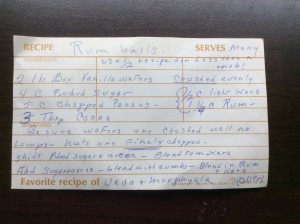 RECIPE Rum balls. SERVES Many
INGREDIENTS use 1/2 recipe for
2 lb Box Vanilla wafers Crushed evenly
4 C. Powd Sugar 1/2 C light
5 C Chopped Pecans - 1 1/4 C Rum -
3 Tbsp Cocoa
Be sure wafers are crushed well no
lumps - Nuts are finely chopped -
shift Powd sugar & cocoa - Blend
Add Sugar - blend with crumbs - Blend in Rum
Favorite recipe of Veda +